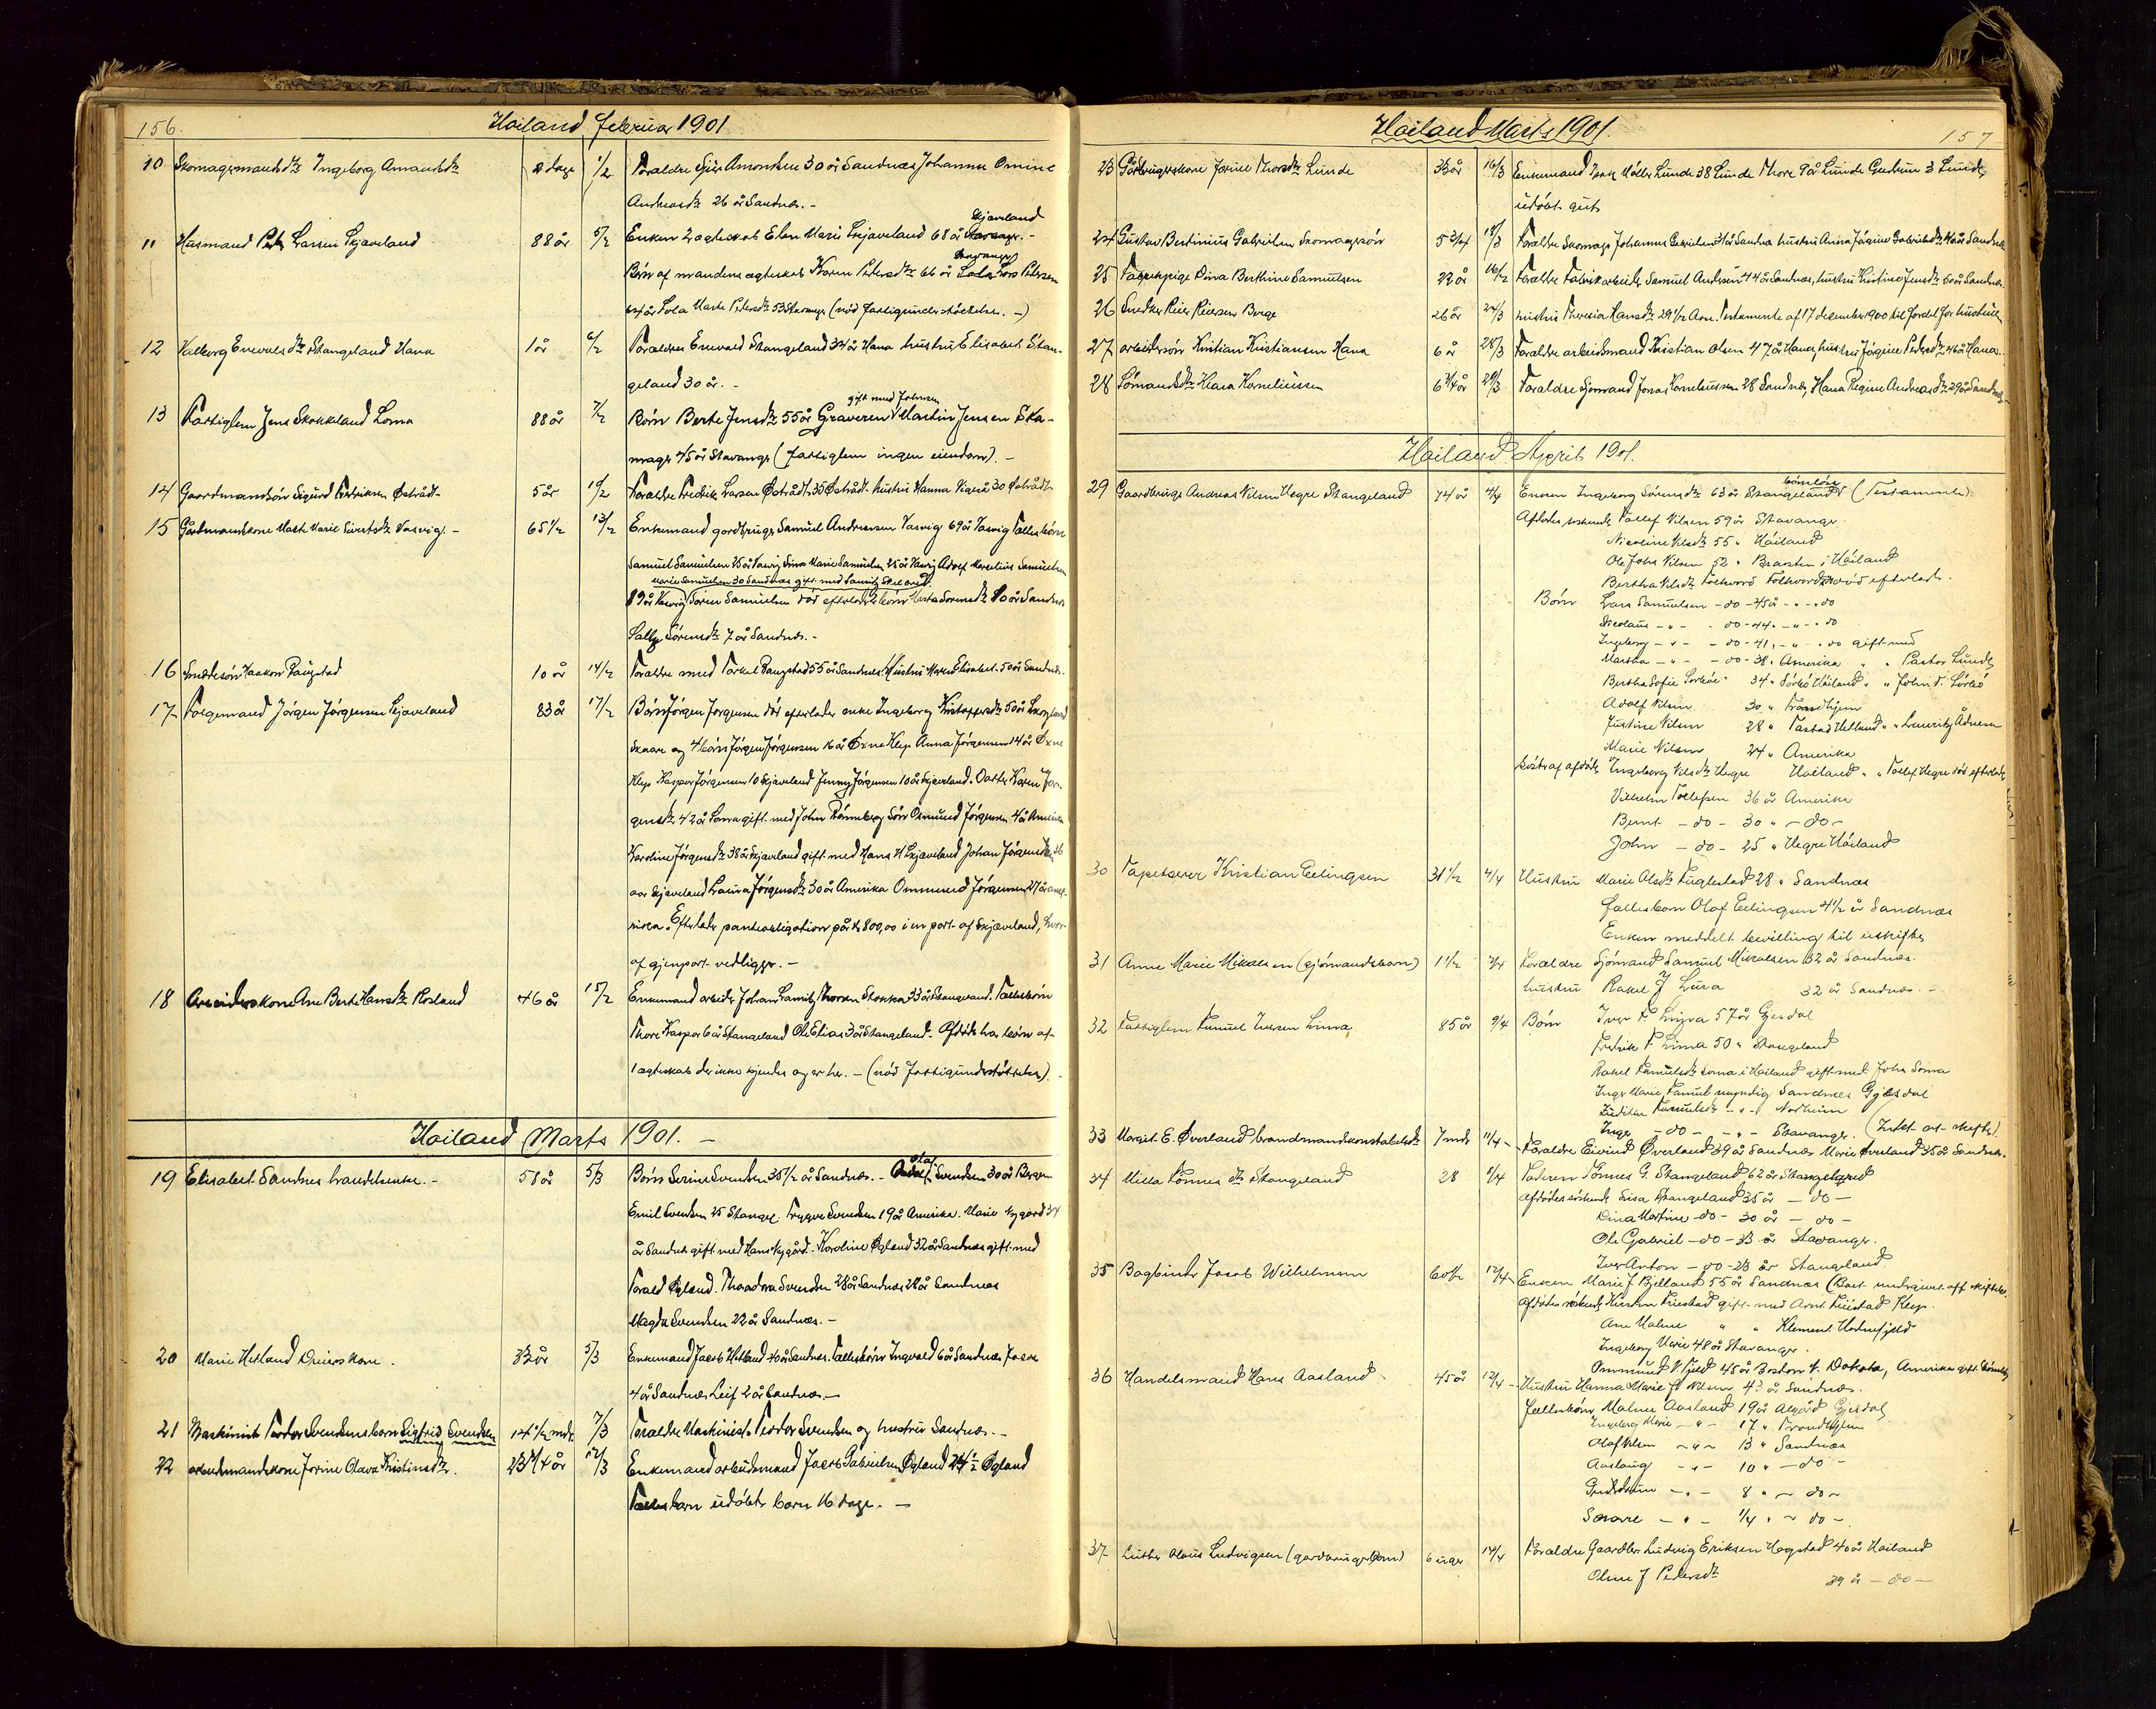 156.
Høiland Februar 1901
10 Skomagermandsdtr Ingeborg Amandsdtr 2 dage 1/2 Forældre Amondsen 30 år Sandnæs Johanna Omine
Andreasdtr 26 år Sandnæs. -
11 Husmand Peder Larsen Skjæveland 88 år 5/2 Enken 2 ægteskab Elen Marie Skjæveland 68 år Skjæveland
Børn af mandens ægteskab Karen Pedersdtr 66 år Stavanger Lars Pedersen
64 år Sola Marta Pedersdtr 53 Stavanger (nød fattigunderstøttelse. -)
12 Valborg Enevoldsdtr Stangeland Hana 1 år 6/2 Foræld​re Enevald Stangeland 34 år Hana hustru Elisabet Stan-
geland 30 år. -
13 Fattiglem Jens Skokkeland Loma 88 år 7/2 Børn Berte Jensdtr 55 år Graveren gift med Johnsen Martin Jensen Sko-
mager 45 år Stavanger (fattiglem ingen eiendom). -
14 Gaardmandsøn Sigurd Fredriksen Østrådt 5 år 10/2 Forældre Fredrik Larsen Østrådt 35 Østrådt hustru Hanna 30 Østrådt
15 Gårdmandskone Marta Marie Sivertsdtr Vasvig. - 65 1/2 13/2 Enkemand gardbruger Samuel Andreassen Vasvig 69 år Vasvig Fællesbørn
Samuel Samuelsen 28 år Vasvig Marie Samuelsen 25 år Vasvig Adolf Samuelsen
Marie Samuelsen 30 Sandnæs gift med
19 år Vasvig Soren Samuelsen død efterlader 2 børn Marta Sorensdtr 10 år Sandnæs
Sally Sørensdtr 7 år Sandnæs. -
16 Smedesøn Haakon Raugstad 10 år 14/2 Forældre smed Torkel Raugstad 55 år Sandnæs Hustru Elisabet 50 år Sandnæs.
17 Folgemand Jørgen Jørgensen Skjæveland 83 år 17/2 Børn Jørgen Jørgensen død efterlader enke Ingeborg Kristoffersdtr 50 år
Skaare og 4 børn Jørgen Jørgensen 16 år Øxne Klep Anna Jørgensen 14 år Øxne
Klep Kaspar Jørgensen 10 Skjæveland Jenny Jørgensen 10 år Skjæveland. Datter Karen Jør-
gensdtr 42 år Soma gift med John Rønneberg Søn Osmund Jørgensen 40 år Amerika
Karoline Jørgensdtr 38 år Skjæveland gift med Hans H Skjæveland Johan Jørgensen 36
aar Skjæveland Laura Jørgensdtr 30 år Amerika Ommund Jørgensen 27 år ame-
rika. Efterlader panteobligation på kr 800,00 i en part af Skjæveland, hvor-
af gjenpart vedligger. -
18 Arbeiderskone Ane Berte Hansdtr Rosland 46 år 15/2 Enkemand arbeider Johan Thorsen Stokka 33 år Stangeland. Fællesbørn
Thore Kaspar 6 år Stangeland Ole Elias 3 år Stangeland - Afdøde har børn af
1 ægteskab der ikke kjendes og er her. - (nød Fattigunderstøttelse).
Høiland Marts 1901. -
19 Elisabet Sandnes handelsenke. - 58 år 5/3 Børn Serine Svendsen 35 1/2 år Sandnæs. - Olaf Svendsen 30 år Bergen
Emil Svendsen 25 Stavanger. Trygve Svendsen 19 år Amerika. Marie Nygård 34
år Sandnæs gift med Hans Nygård. Karoline Øgland 32 år Sandnæs gift med
Torald Øgland. Thoodora Svendsen 28 år Sandnæs 28 år Sandnæs
Magda Svendsen 22 år Sandnæs. -
20 Marie Hetland Dreierskone. 33 år 5/3 Enkemand Jacob Hetland 40 år Sandnæs. Fællesbørn Ingvald 6 år Sandnæs
4 år Sandnæs Leif 2 år Sandnæs. -
21 Maskinist Teodor Svendsens barn Sigfrid Svendsen 14 1/2 mdr 7/3 Forældre Maskinist Teodor Svendsen og hustru Sandnæs. -
22 arbeidmandskone Jorine Olava Kristinsdtr. 23 3/4 år 12/3 Enkemand arbeidsmand Jacob Gabrielsen Øgland 24 1/2 Øgland
Fællesbarn udøbt barn 16 dage. -
Høiland Marts 1901.
157
23 Gårdbrugerskone Jorine Thorsdtr Lunde 33 år 16/3 Enkemand Møller Lunde 38 Lunde Thore 9 år Lunde Gudrun 3 Lunde
udøbt gut
24 Gustav Bertinius Gabrielsen Skomagersøn 5 3/4 18/3 Forældre Skomager Johannes Gabrielsen 31 år Sandnæs hustru Anna Jørgine Gabrielsdtr år Sandnæs
25 Fabrikpige Dina Berthine Samuelsen 22 år 16/2 Forældre Fabrikarbeider Samuel Andersen 44 år Sandnæs, hustru Kristine Jensdtr 50 år Sandnæs.
26 Snedker Reier Reiersen Berge 26 år 24/3 hustru Theresia Hansdtr 29 1/2 Testamente af 17 december 1900 til Fordel for hustruen
27 arbeidersøn Kristian Kristiansen Hana 6 år 28/3 Forældre arbeidsmand Kristian Olsen 47 år Hana, hustru Jørgine Pedersdtr 46 år Hana.
28 Sømandsdtr Klara Korneliussen 6 3/4 år 29/3 Forældre Sjømand Jonas Korneliussen 28 Sandnæs, Hana Regine Andreasdtr 29 år Sandnæs
Høiland April 1901.
29 Gaardbruger Andreas Nilsen Hegre Stangeland 74 år 4/4 Enken Ingeborg Sørensdtr 63 år Stangeland barnløse (Testamente).
Afdødes søskende Tollef Nilsen 59 år Stavanger
Nicoline Nilsdtr 55 " Høiland
Ole Johs Nilsen 52 " Brasten i Høiland
Bertha Nilsdtr Folkvord Folkvord død efterlader.
Børn Lars Samuelsen - do - 45 år - " - do
Nicolaus - " - - do - 44 " - " - do
Ingeborg - " - - do - 41 " - " - do gift med
Martha - " - - do - 38 " Amerika " " Pastor Lunde
Bertha Sofie Sørbøe 34 " Sørbø Høiland " " John T. Sørbø
Adolf Nilsen 30 " Trondhjem
Justine Nilsen 28 " Tastad Hetland " " Lauritz Ådnesen
Marie Nilsen 24 " Amerika
Søster af afdøde Ingeborg Nilsdtr Hegre Høiland " " Tollef Hegre død efterlader
Vilhelm Tollefsen 36 år Amerika
Bernt - do - 30 " - do -
John - do - 25 " Hegre Høiland
30 Tapetserer Kristian Eelingsen 31 1/2 4/4 Hustru Marie Olsdtr Fuglestad 28 " Sandnæs
fællesbarn Olaf Eelingsen 4 1/2 år Sandnæs
Enken meddelt bevilling til uskiftet
31 Anne Marie Mikalsen (sjømandsbarn) 1 1/2 Forældre Sjømand Samuel Mikalsen 32 år Sandnæs.
hustru Rakel J Lura 32 år Sandnæs. -
32 Fattiglem Samuel Iversen Lima 85 år 9/4 Børn Iver S. Lima 57 år Gjesdal
Fredrik S Lima 50 " Stangeland
Rakel Samuelsdtr Soma i Høiland gift med John Soma
Inger Marie Samuel myndig Sandnæs Gjesdal
Samuelsdtr - " - Norheim
Inger - do - - " - Stavanger. (Intet at skifte).
33 Margit E. Øverland brandmandskonstabelsdtr 7 mdr 11/4 - Forældre Eivind Øverland 39 år Sandnæs Marie Øverland 35 år Sandnæs.
34 Milla Tønnesdtr Stangeland 28 1/4 Faderen Tønnes G. Stangeland 62 år Stangeland
Afdødes søskende Stangeland 35 år - do -
Dina Martine - do - 30 år - do -
Ole Gabriel - do - 33 år Stavanger.
Iver Anton - do - 23 år Stangeland
35 Bogbinder Jacob Wilhelmsen 60 1/2 12/4 - Enken Marie J. Bjelland 55 år Sandnæs
Afdødes søskende Kirsten Friestad gift med Arnt Friestad Klep.
Ane Malene " " Klement
Ingeborg Marie 48 år Stavanger.
Ommund 45 år Boston N. Dakota, Amerika
36 Handelsmand Hans Aasland - 45 år 12/4 - Hustru Hanna Marie Nilsen 43 år Sandnæs.
Fællesbørn Malene Aasland 19 år Aalgård Gjesdal
Ingeborg Marie - " - 17 " Trondhjem
Olaf Nilsen - " - 13 " Sandnæs
Aaslaug - " - 10 " - do -
- " - 8 " - do -
Sverre - " - 1/4 " - do -.
37 Luther Olaus Ludvigsen (gardbrugerbarn) 6 uger 14/4 Forældre Gaardbr. Ludvig Eriksen Hogstad 40 år Høiland
Oline J Pedersdtr 39 år - do -